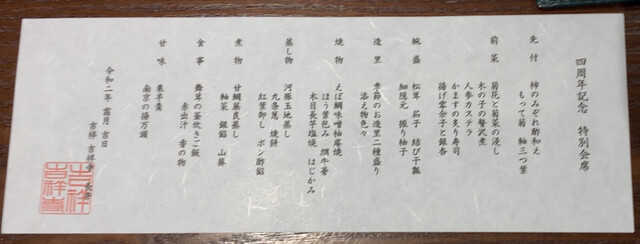 四周年記念 特別会席
先付 柿のみぞれ酢和え
もって菊 軸三つ葉
前菜 菊花と菊菜の浸し
木の子の贅沢煮
人参カステラ
かますの炙り寿司
揚げ零余子と銀杏
椀盛 松茸 茄子 結び干瓢
細隠元 振り柚子
造里 季節のお造里二種盛り
添え物色々
焼物 えぼ鯛味噌柚庵焼
ほう葉包み 燗牛蒡
木目長芋塩焼 はじかみ
蒸し物 河豚玉地蒸し
九条葱 焼餅
紅葉卸し ポン酢餡
煮物 甘鯛蕪良蒸し
軸菜 銀餡 山葵
食事 舞茸の釜炊きご飯
赤出汁 香の物
甘味 栗羊羹
南京の揚万頭
令和二年 霜月 吉日
吉祥 吉祥寺
吉祥
吉祥寺